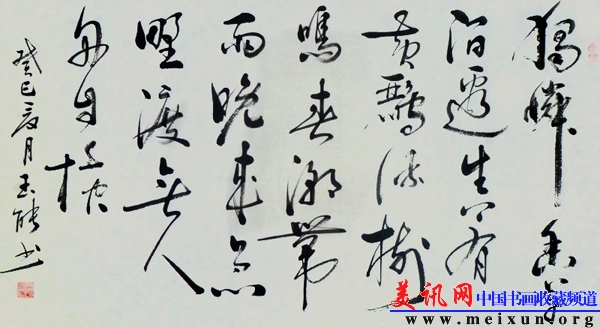 獨憐幽草
澗邊生上有
黄鸝深樹
鳴春潮帶
雨晚来急
野渡無人
舟自横
癸巳夏月玉书
美讯网 中国书画收藏频道
www.meixun.org